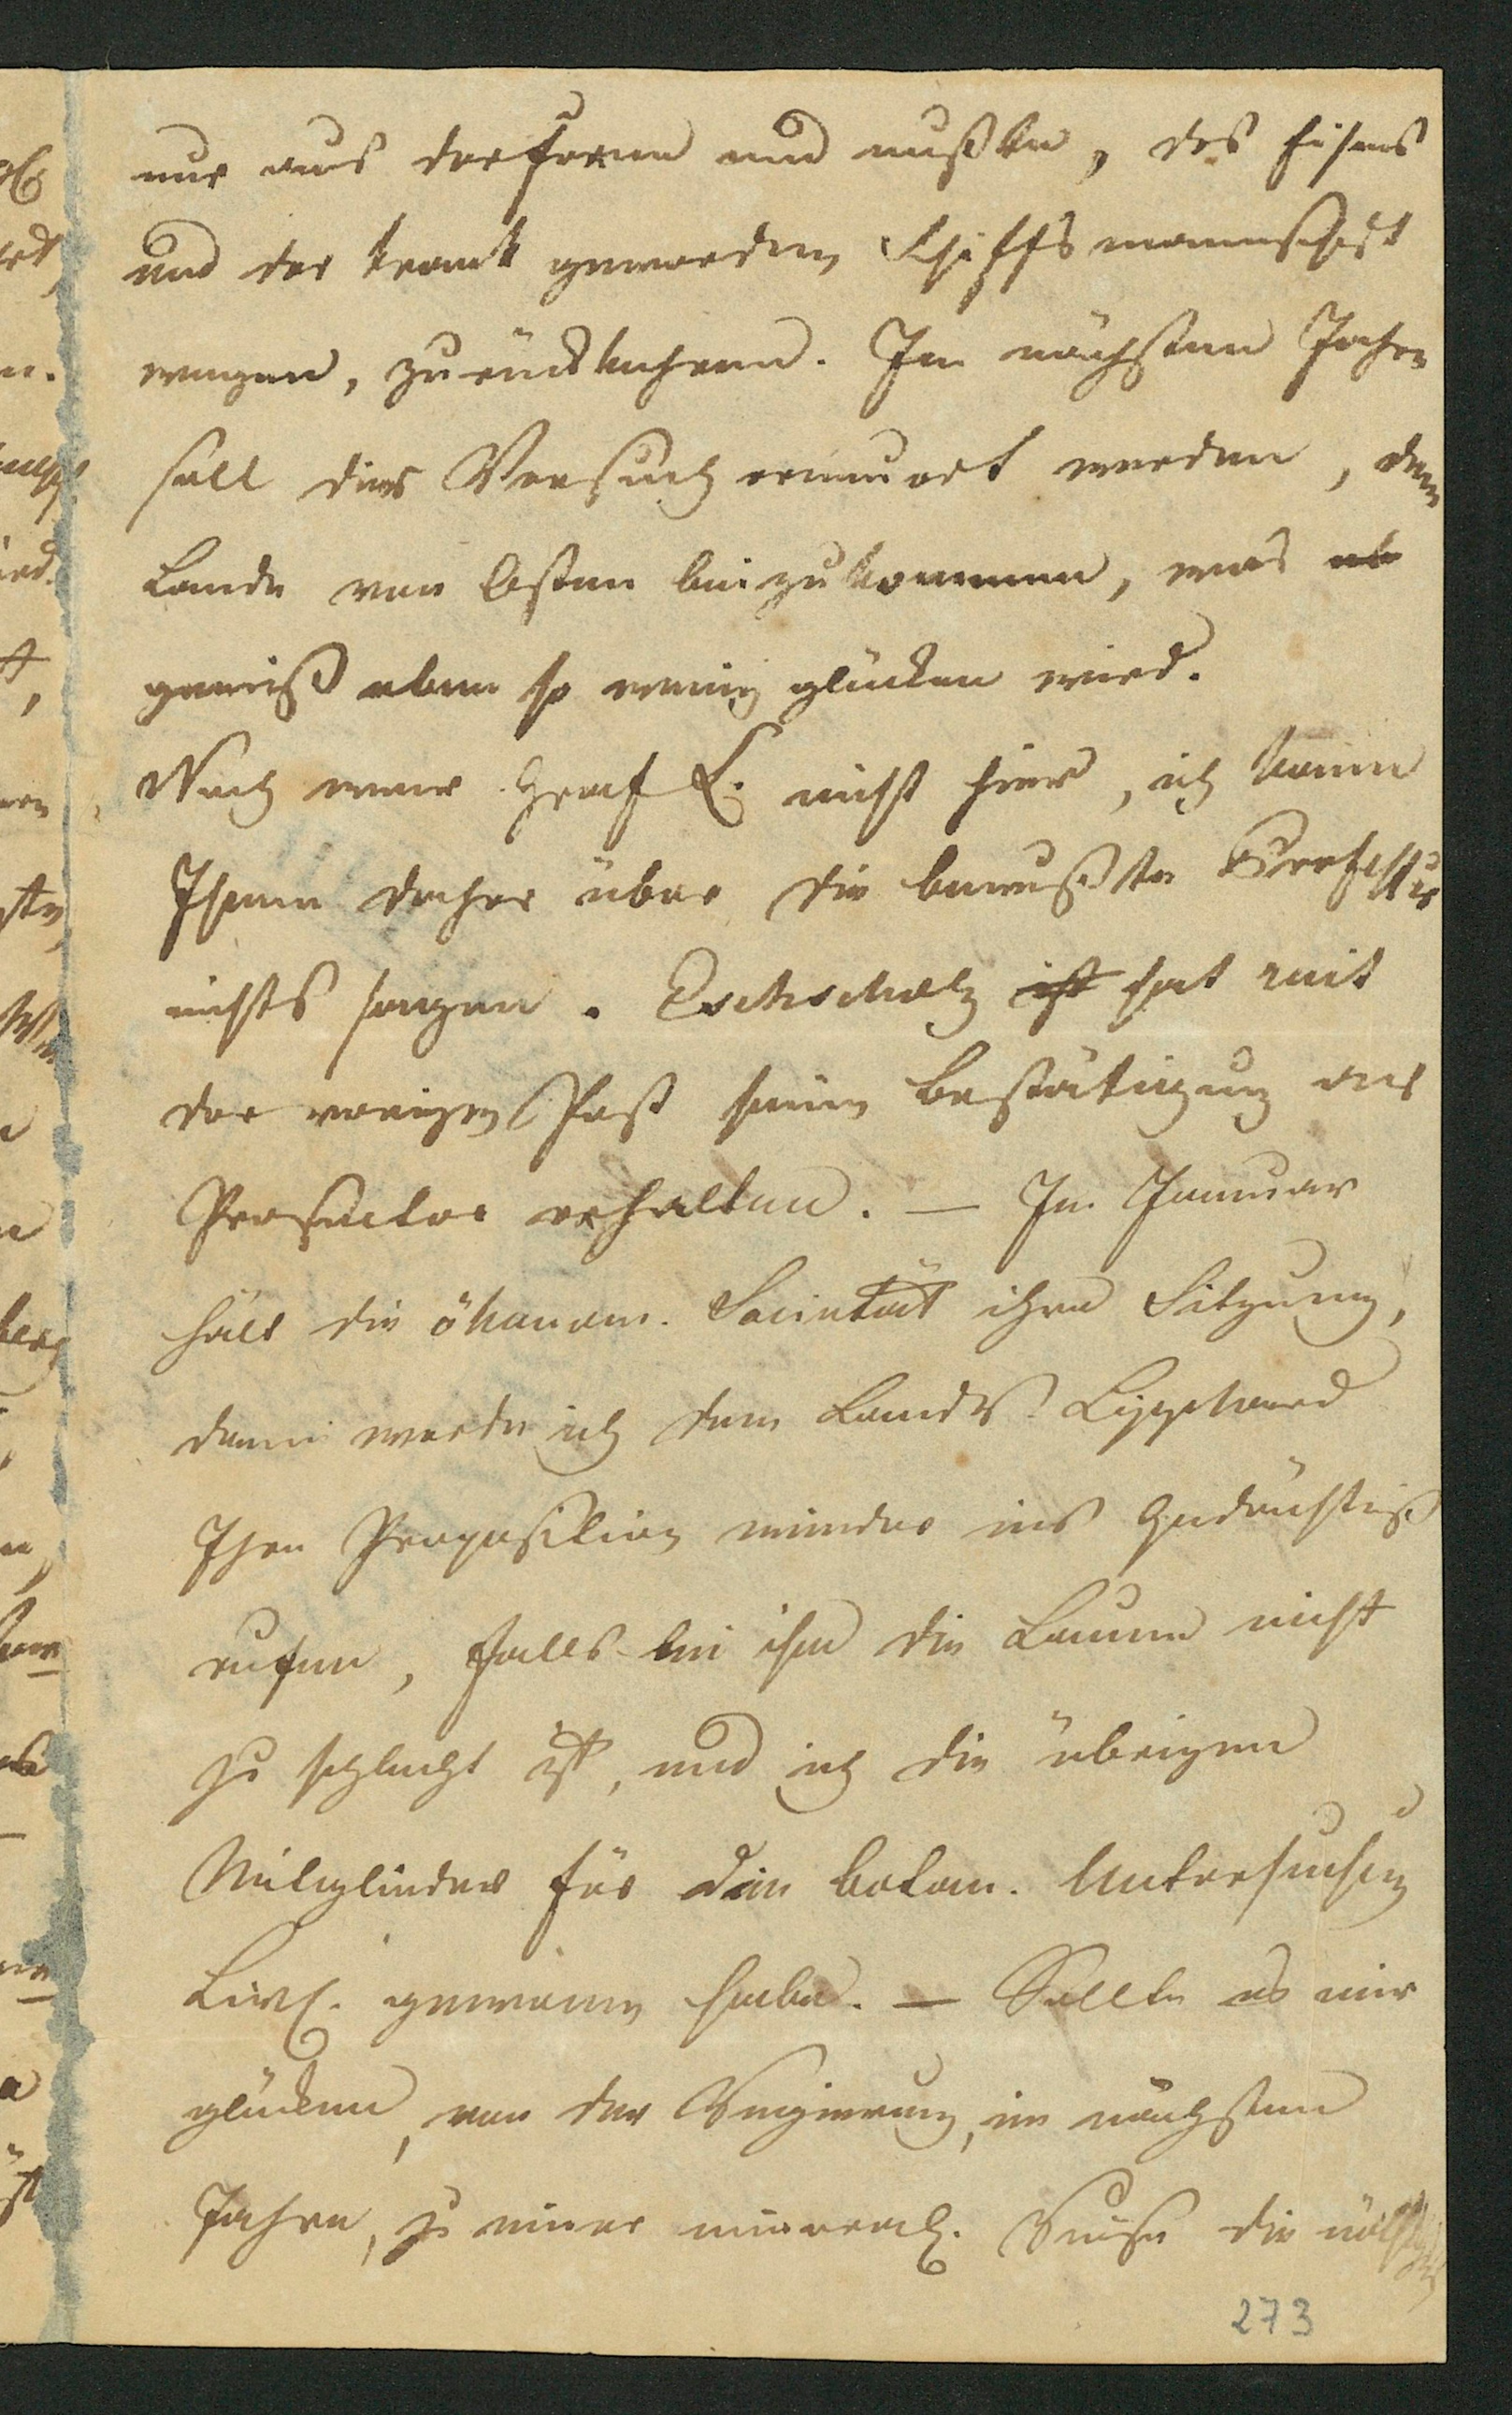 nur aus der ferne und mußte, des Eises
und der krank gewordenen Schiffsmannschaft
wegen, zurückkehren. Im nächsten Jahre
soll dies Versuch erneuert werden, dem
Lande von Osten beizukommen, was eb
gewiß eben so wenig glücken wird.
Noch war Graf L. nicht hier, ich kann
Ihnen daher über die bewußte Professur
nichts sagen. Eschscholz ist hat mit
der vorigen Post seine Bestätigung als
Prosector erhalten. — Im Januar
hält die ökonom. Societät ihre Sitzung,
dann werde ich dem Landr. Liphard
Ihre Proposition wieder ins Gedächtniß
rufen, falls bei ihm die Laune nicht
zu schlecht ist, und ich die übrigen
Mitglieder für die botan. Untersuchung
Livl. gewonnen habe. — Sollte es mir
glücken, von der Regierung, im nächsten
Jahre, zu einer mineral. Reise die
273